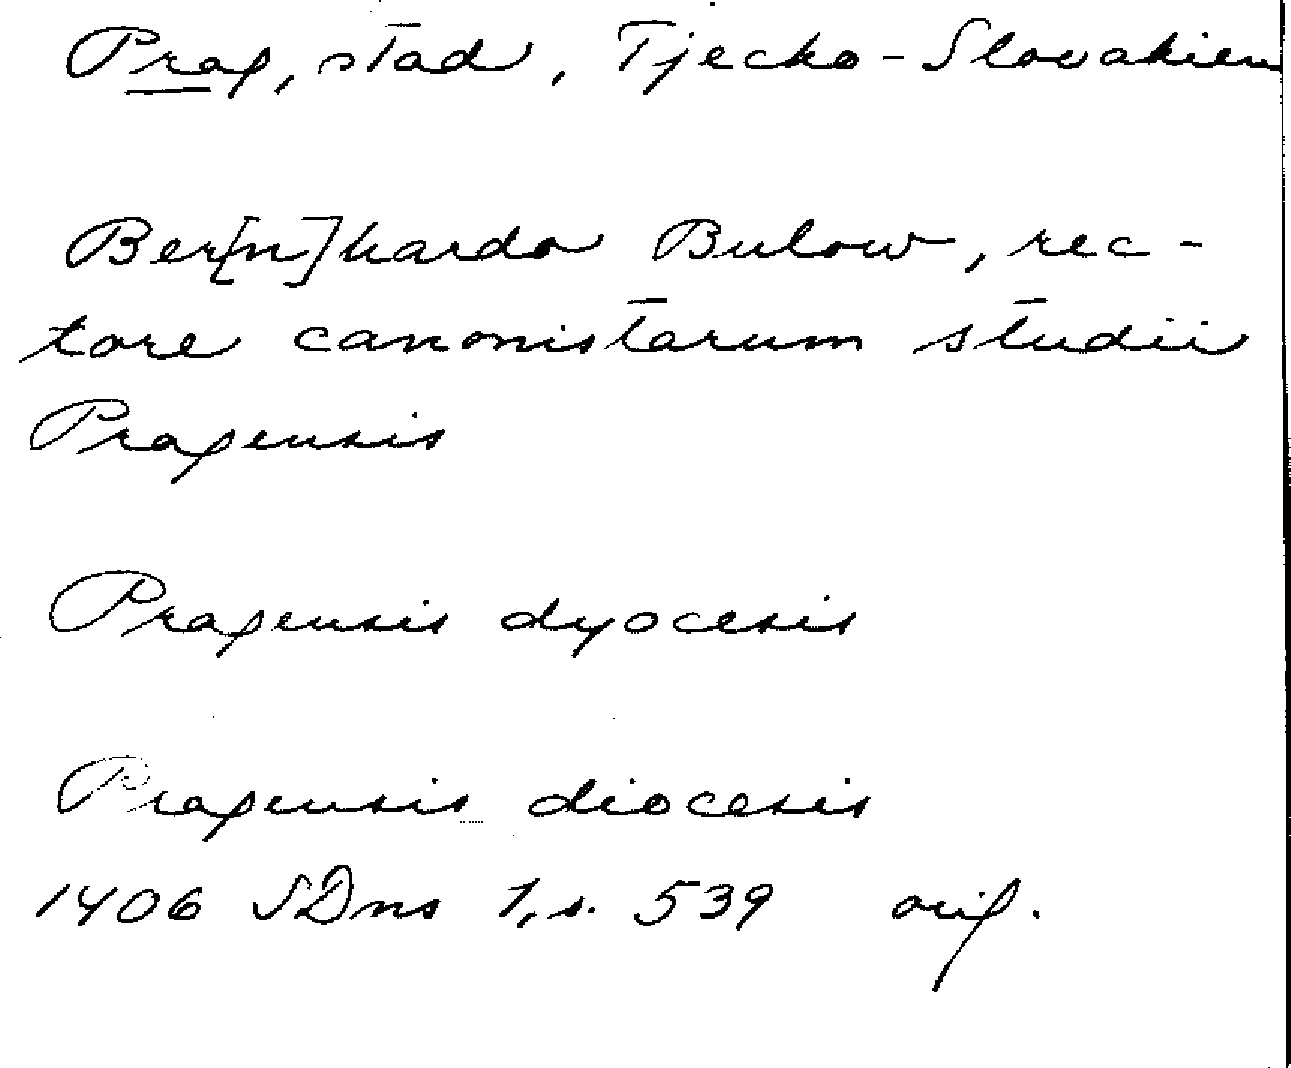 Prag, stad, Tjecko-Slovakien
Ber[n]hardo Bulow, rec-
tore canonistarum studii
Pragensis
Pragensis dyocesis
Pragensis diocesis
1406 SDns 1, s. 539 orig.